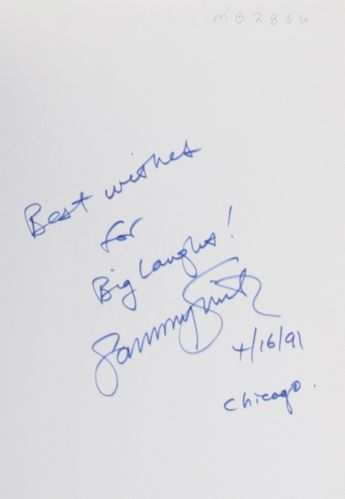 MB2856
Best wishes
for
Big Laughs!
Sammy Smith
4/16/91
Chicago.